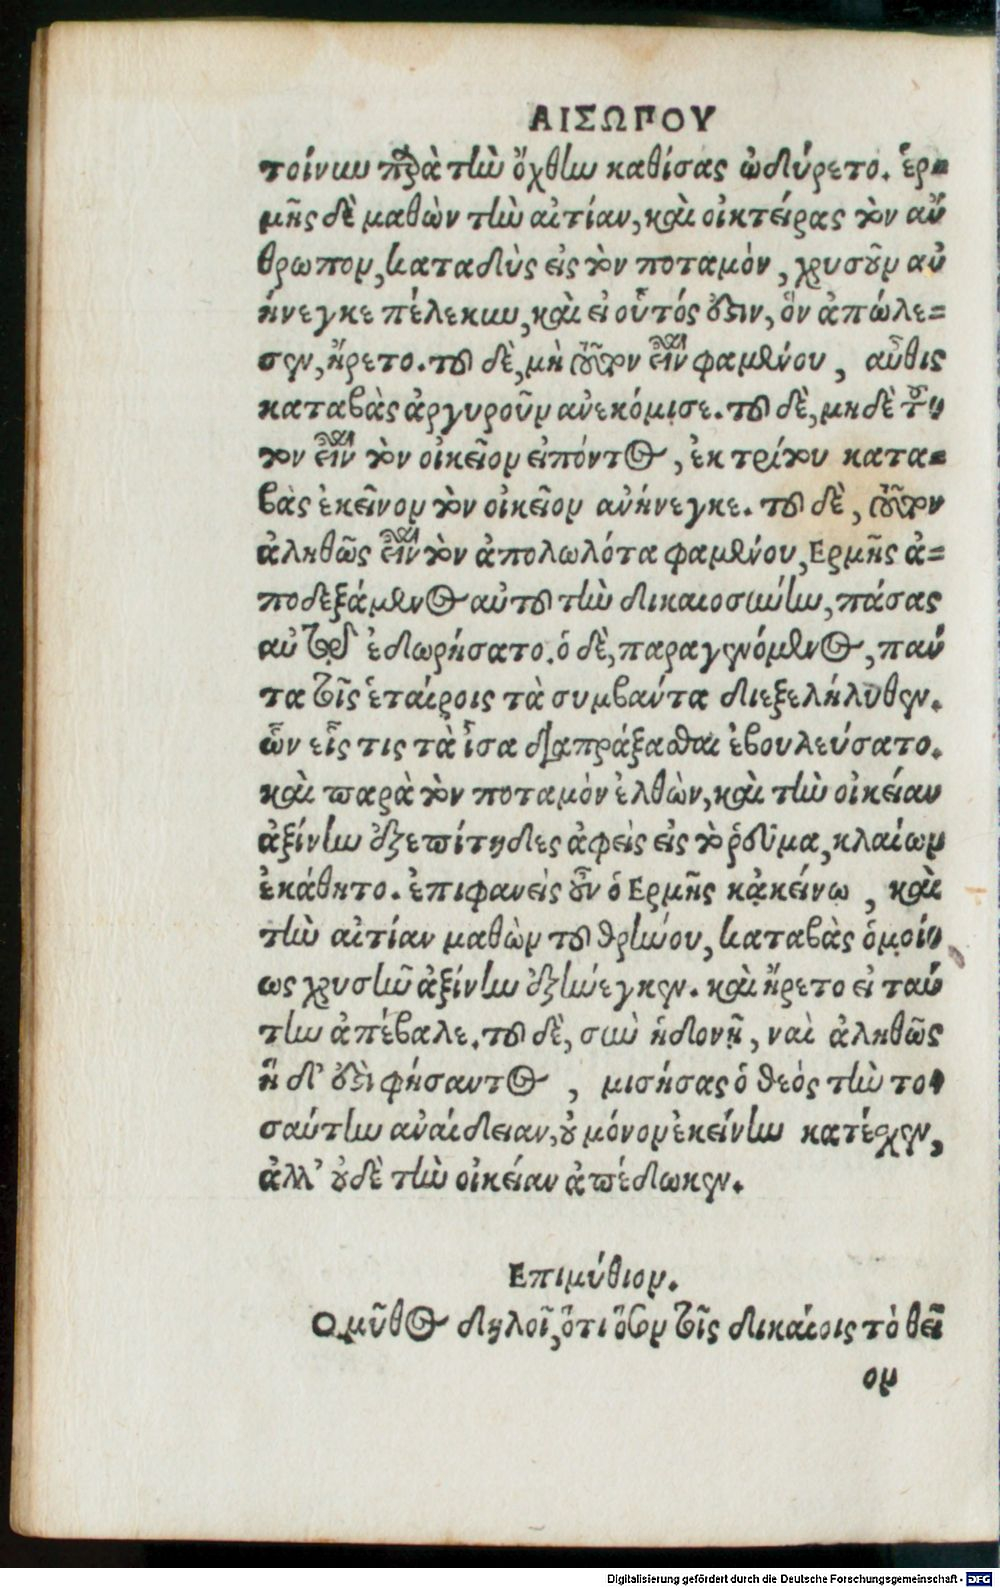 ΑΙΣΩΠΟΥ
τοίνυν παρὰ τὴν ὄχθην καθίσας ὠδύρετο. ἑρ-
μῆς δὲ μαθὼν τὴν αἰτίαν, καὶ οἰκτείρας τὸν ἄν
θρωπον, καταδὺς εἰς τὸν ποταμὸν, χρυσοῦν ἀν
ήνεγκε πέλεκυν, καὶ εἰ οὗτός ἐστιν, ὃν ἀπώλε=
σεν, ἤρετο. τοῦ δὲ, μὴ τοῦτον εἶναι φαμένου, αὖθις
καταβὰς ἀργυροῦν ἀνεκόμισε. τοῦ δὲ, μηδὲ τοῦ
τον εἶναι τὸν οἰκεῖον εἰπόντος, ἐκ τρίτου κατα-
βὰς ἐκεῖνον τὸν οἰκεῖον ἀνήνεγκε. τοῦ δὲ, τοῦτον
ἀληθῶς εἶναι τὸν ἀπολωλότα φαμένου, Ερμῆς ἀ=
ποδεξάμενος αὐτοῦ τὴν δικαιοσύνην, πάσας
αὐτῷ ἐδωρήσατο. ὁ δὲ, παραγενόμενος, πάν
τα τοῖς ἑταίροις τὰ συμβάντα διεξελήλυθεν.
ὧν εἷς τις τὰ ἶσα διαπράξασθαι ἐβουλεύσατο.
καὶ παρὰ τὸν ποταμὸν ἐλθὼν, καὶ τὴν οἰκείαν
ἀξίνην ἐξεπίτηδες ἀφεὶς εἰς τὸ ῥεῦμα, κλαίων
ἐκάθητο. ἐπιφανεὶς οὖν ὁ Ερμῆς κᾀκείνῳ, καὶ
τὴν αἰτίαν μαθὼν τοῦ θρήνου, καταβὰς ὁμοί
ως χρυσῆν ἀξίνην ἐξήνεγκεν. καὶ ἤρετο εἰ ταύ
την ἀπέβαλε. τοῦ δὲ, σὺν ἡδονῇ, ναὶ ἀληθῶς
ἥ δ' ἐστὶ φήσαντος, μισήσας ὁ θεὸς τὴν το
σαύτην ἀναίδειαν, οὐ μόνον ἐκείνην κατέχεν,
ἀλλ' οὐδὲ τὴν οἰκείαν ἀπέδωκεν.
Επιμύθιον.
Ο μῦθος δηλοῖ, ὅτι ὅσον τοῖς δικαίοις τὸ θεῖ
ον
Digitalisierung gefördert durch die Deutsche Forschungsgemeinschaft - DFG